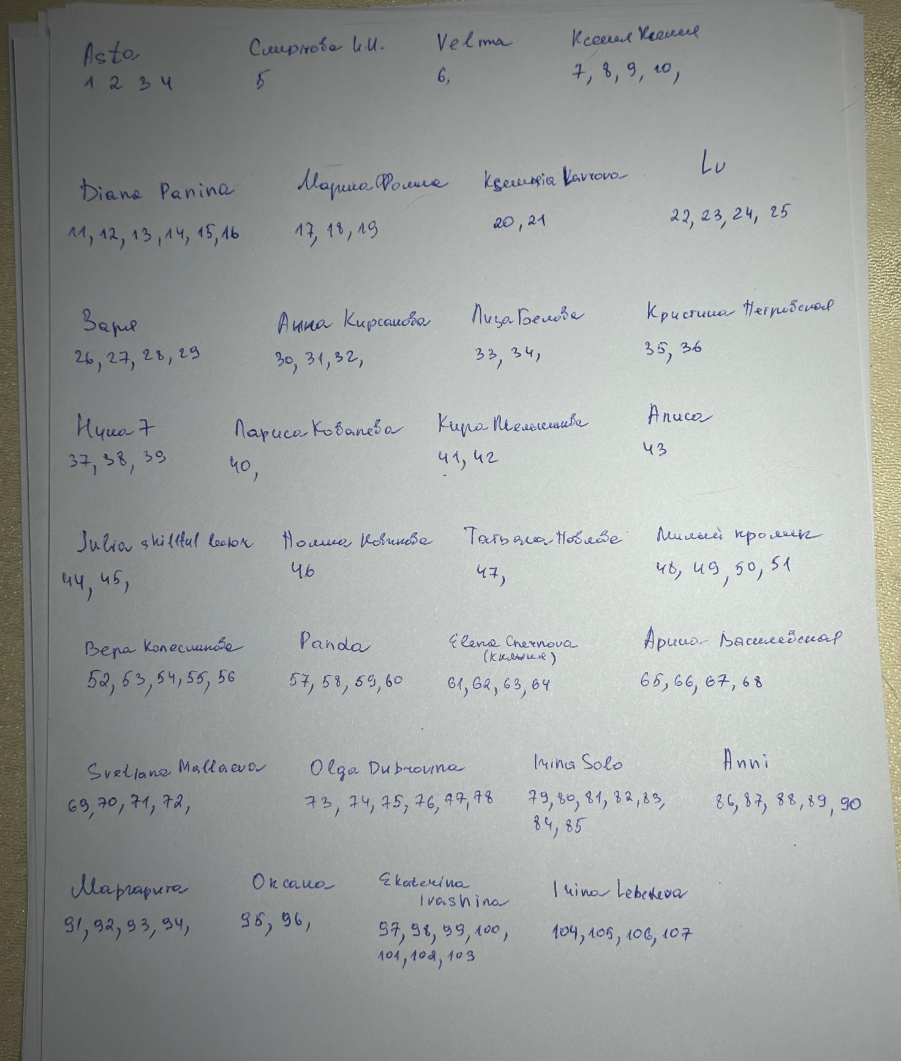 Asta Смирнова И.И. Velma Ксения Ксения
1 2 3 4 5 6, 7, 8, 9, 10,
Diana Panina Марина Фомина Ksenia Lavrova Lv
11, 12, 13, 14, 15, 16 17, 18, 19 20, 21 22, 23, 24, 25
Заря Анна Кирсанова Лиза Белова Кристина
26, 27, 28, 29 30, 31, 32, 33, 34, 35, 36
7 Лариса Ковалева Кира Алиса
37, 38, 39 40, 41, 42 43
Julia skilful Татьяна Милый кролик
44, 45, 46 47, 48, 49, 50, 51
Вера Колесникова Panda Elena Chernova Арина Василевская
52, 53, 54, 55, 56 57, 58, 59, 60 61, 62, 63, 64 65, 66, 67, 68
Svetlana Mallaeva Olga Dubrovina Irina Solo Anni
69, 70, 71, 72, 73, 74, 75, 76, 77, 78 79, 80, 81, 82, 83, 86, 87, 88, 89, 90
84, 85
Маргарита Оксана Ekaterina Irina Lebedeva
Ivashina
91, 92, 93, 94, 95, 96, 97, 98, 99, 100, 104, 105, 106, 107
101, 102, 103